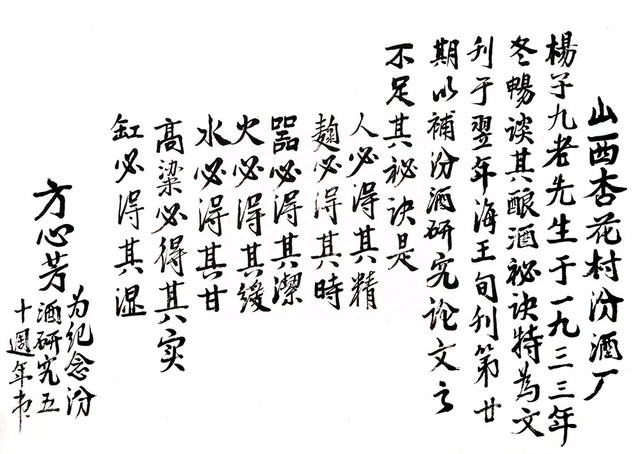 山西杏花村汾酒厂
楊子九老先生于一九三三年
冬暢谈其酿酒秘诀特為文
刊于翌年海王旬刊第廿
期以補汾酒研究論文之
不足其秘诀是
人必得其精
麹必得其時
器必得其潔
火必得其缓
水必得其甘
高粱必得其实
缸必得其湿
方心芳
为纪念汾
酒研究五
十週年书